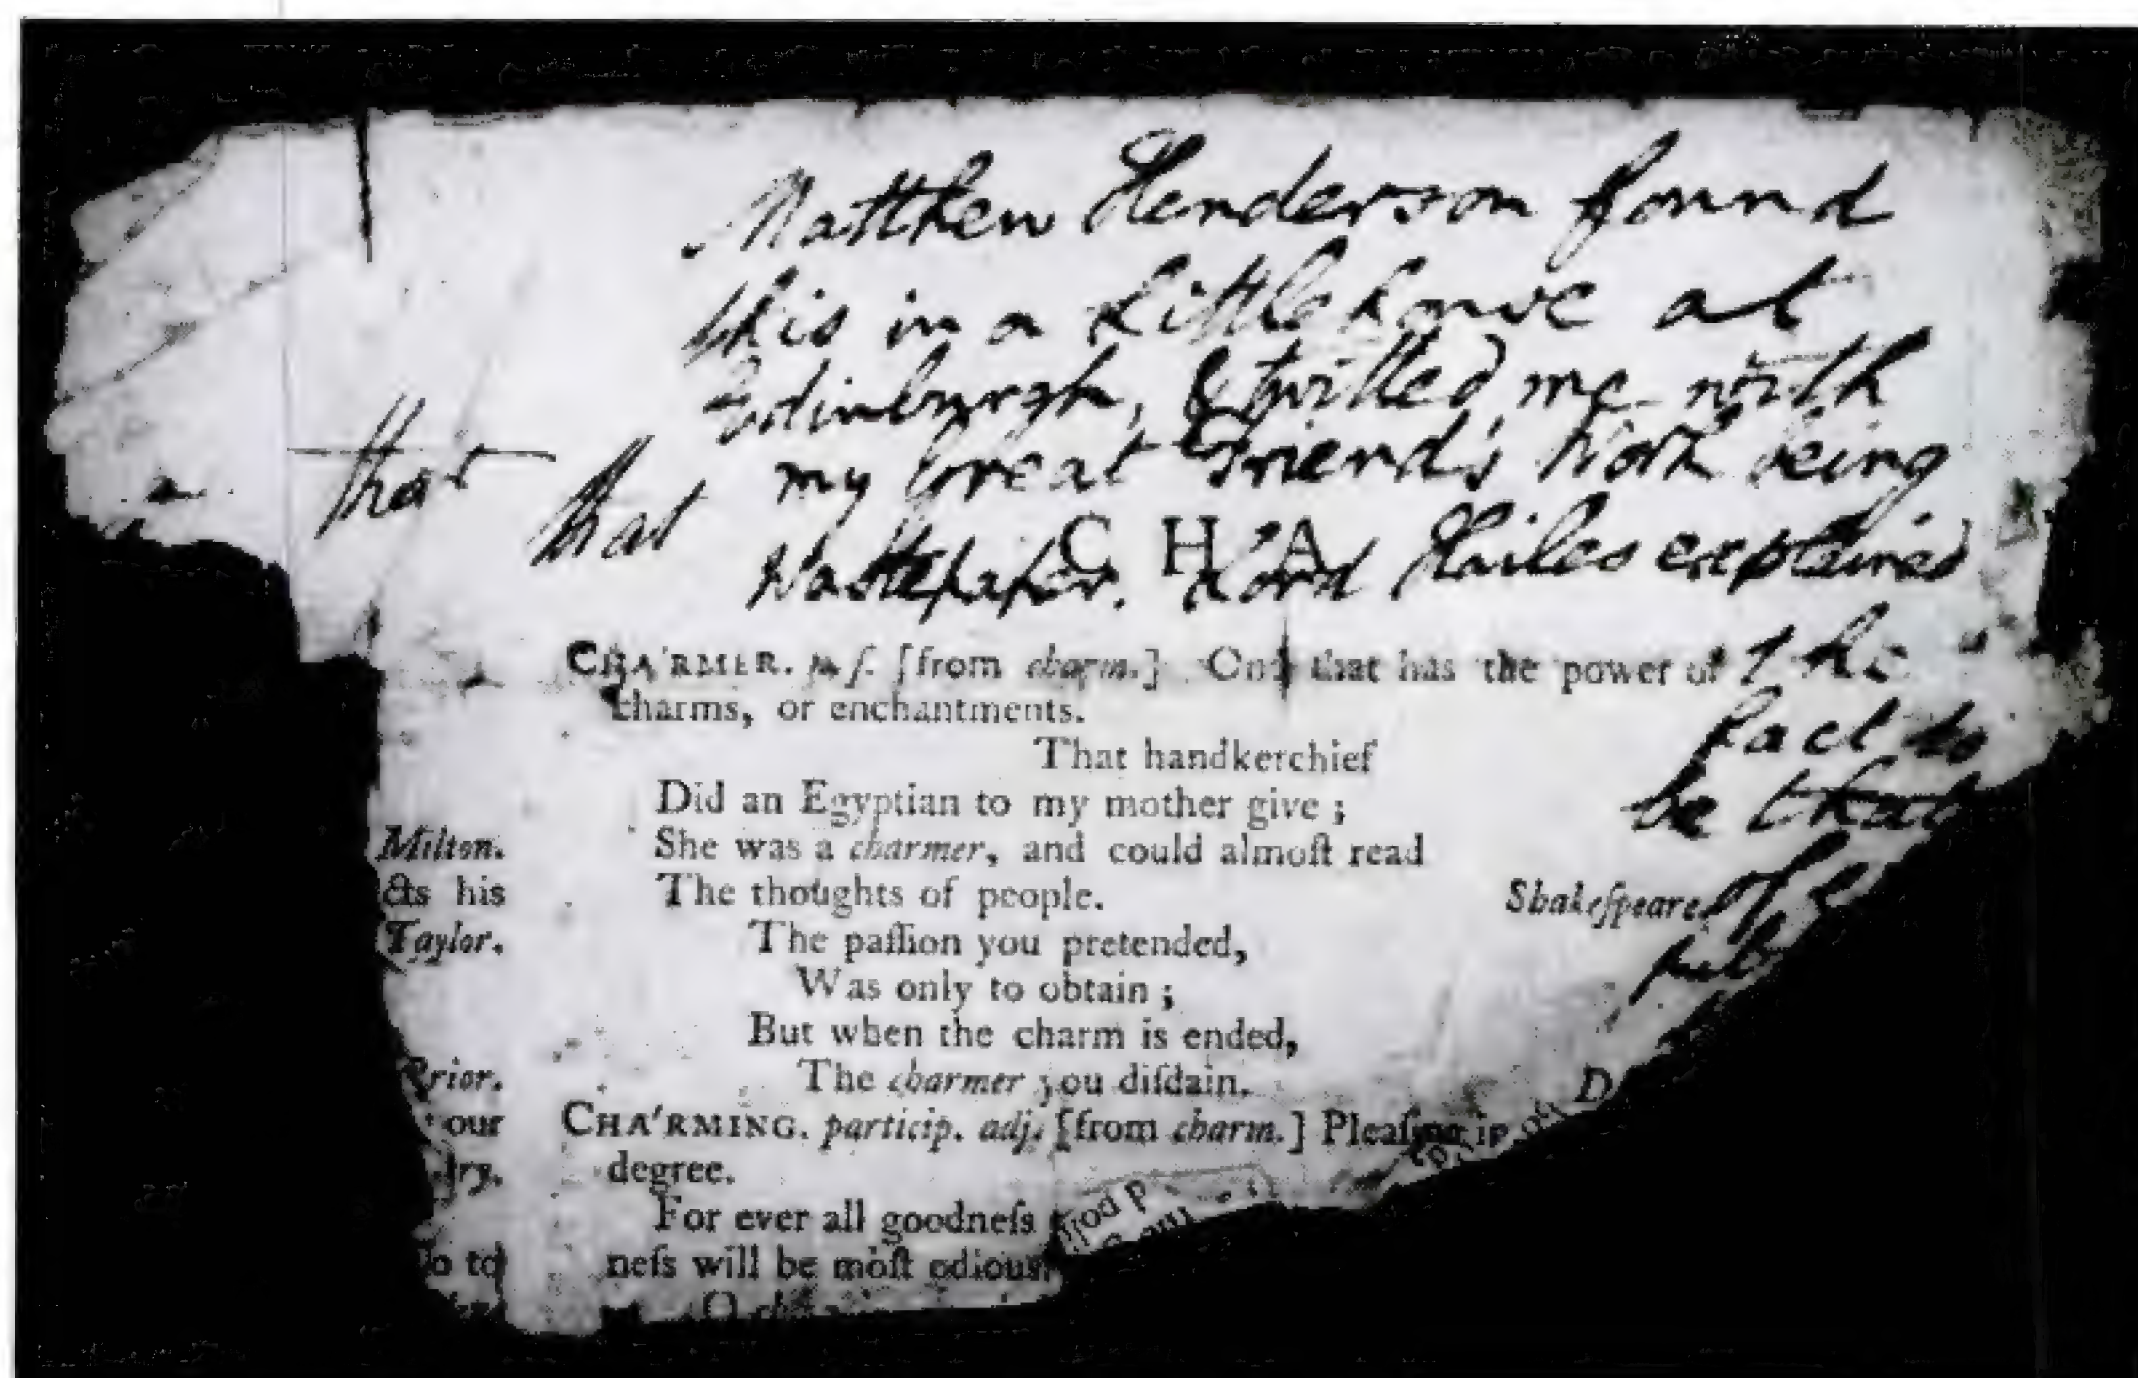 Matthew Henderson found
this in a little house at
Edinburgh, & twitted me with
my Great Friend's Work being
that that
Wastepaper. Lord Hailes explained
C H A
the
fact to
be that
of
CHA'RMER. n. ſ. [from charm.] One that has the power of
charms, or enchantments.
That handkerchief
Did an Egyptian to my mother give;
She was a charmer, and could almoſt read
The thoughts of people. Shakeſpeare.
The paſſion you pretended,
Was only to obtain;
But when the charm is ended,
The charmer you diſdain.
CHA'RMING. particip. adj. [from charm.] Pleaſing in
degree.
For ever all goodneſs
neſs will be moſt odious
O
Milton.
cts his
Taylor.
Prior.
our
ſtry.
o to